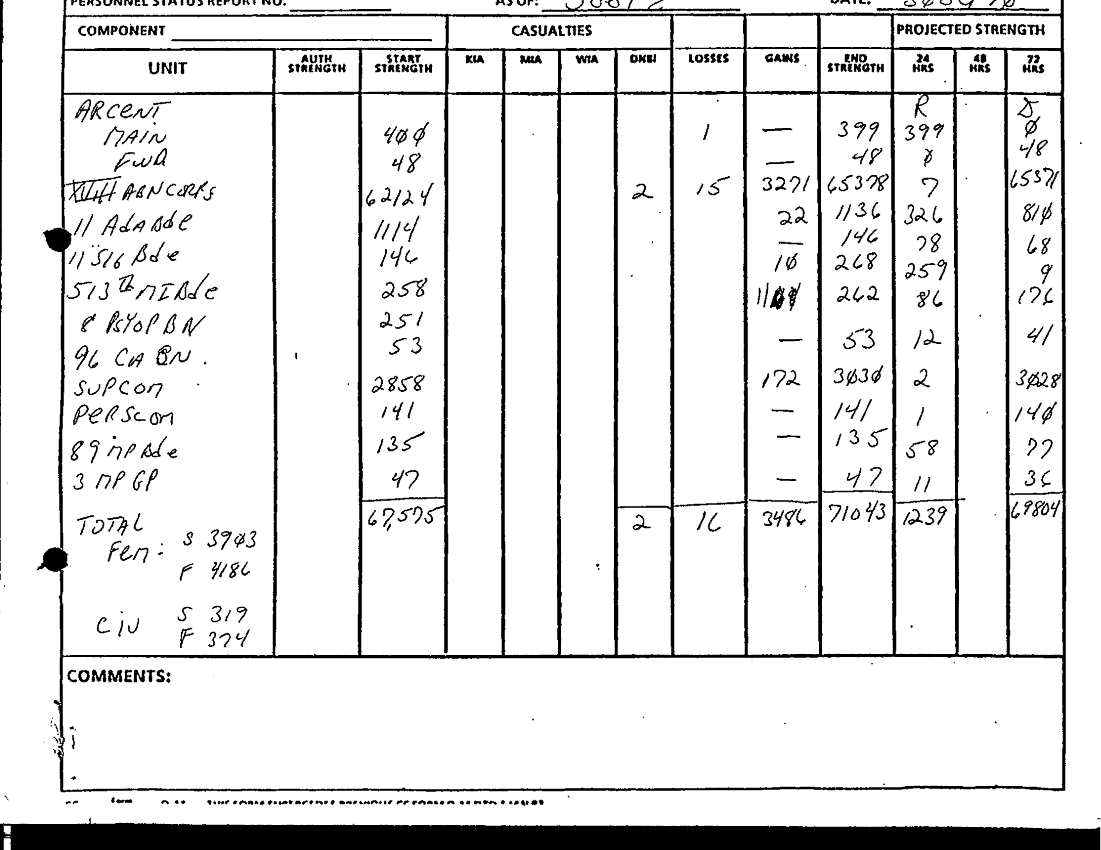 PERSONNEL STATUS REPORT NO. AS OF: DATE:
COMPONENT CASUALTIES PROJECTED STRENGTH
UNIT AUTH STRENGTH START STRENGTH KIA MIA WIA DNBI LOSSES GAINS END STRENGTH 24 HRS 48 HRS 72 HRS
ARCENT R D
MAIN 400 1 — 399 399 0
FWD 48 — 48 0 48
XVIII ABN CORPS 62124 2 15 3271 65378 7 65371
11 ADA Bde 1114 22 1136 326 810
11 SIG Bde 146 — 146 78 68
513th MI Bde 258 10 268 259 9
8 PSYOP BN 251 11 262 86 176
96 CA BN. 53 — 53 12 41
SUPCOM 2858 172 3030 2 3028
PERSCOM 141 — 141 1 140
89 MP Bde 135 — 135 58 77
3 MP GP 47 — 47 11 36
TOTAL 67,575 2 16 3486 71043 1239 69804
Fem: S 3903
F 4186
CIV S 319
F 374
COMMENTS: